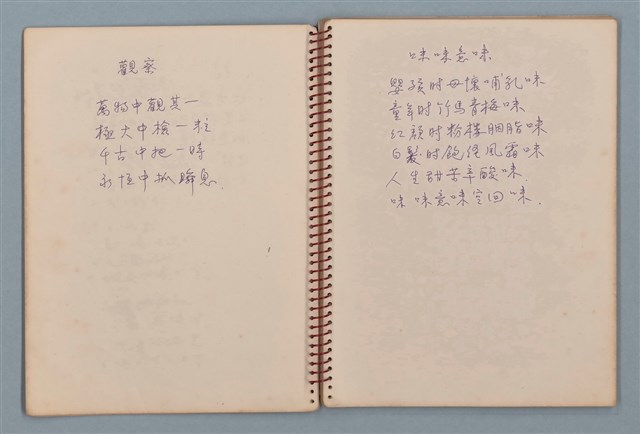 觀察
萬物中觀其一
極大中檢一粒
千古中把一時
永恆中抓瞬息
味味意味
嬰孩时母懷哺乳味
童年时竹馬青梅味
红顏时粉樸胭脂味
白髮时飽经風霜味
人生甜苦辛酸味.
味味意味空回味.